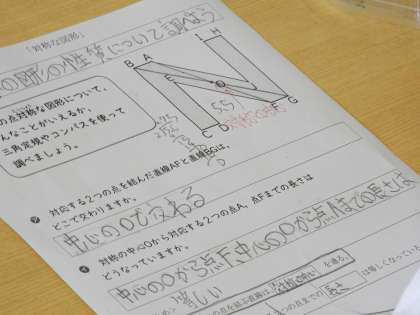 「対称な図形」
の図形の性質について調べよう
の点対称な図形について、
んなことがいえるか、
三角定規やコンパスを使って
調べましょう。
B A
I H
E
O
5.5
C D
F G
対応する2つの点を結んだ直線AFと直線BGは、
どこで交わりますか。
中心のOで交わる
対称の中心Oから対応する2つの点A、点Fまでの長さは
どうなっていますか。
中心のOから点F、中心のOから点Aまでの長さは
等しい
の点を結ぶ直線は、
を通る。
つの点までの 長さ は等しくなってい